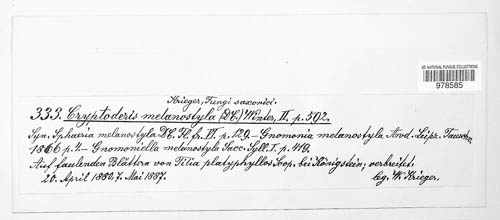 US NATIONAL FUNGUS COLLECTIONS
978585
Krieger, Fungi saxonici.
333. Cryptoderis melanostyla (DC.) Winter, II. p. 592.
Syn. Sphaeria melanostyla DC. Fl. fr. VI. p. 129. – Gnomonia melanostyla Awd. Leipz. Tausch.
1866 p. 4. – Gnomoniella melanostyla Sacc. Syll. I. p. 419.
Auf faulenden Blättern von Tilia platyphyllos Scop. bei Königstein; verbreitet.
20. April 1882, 7. Mai 1887. leg. W. Krieger.